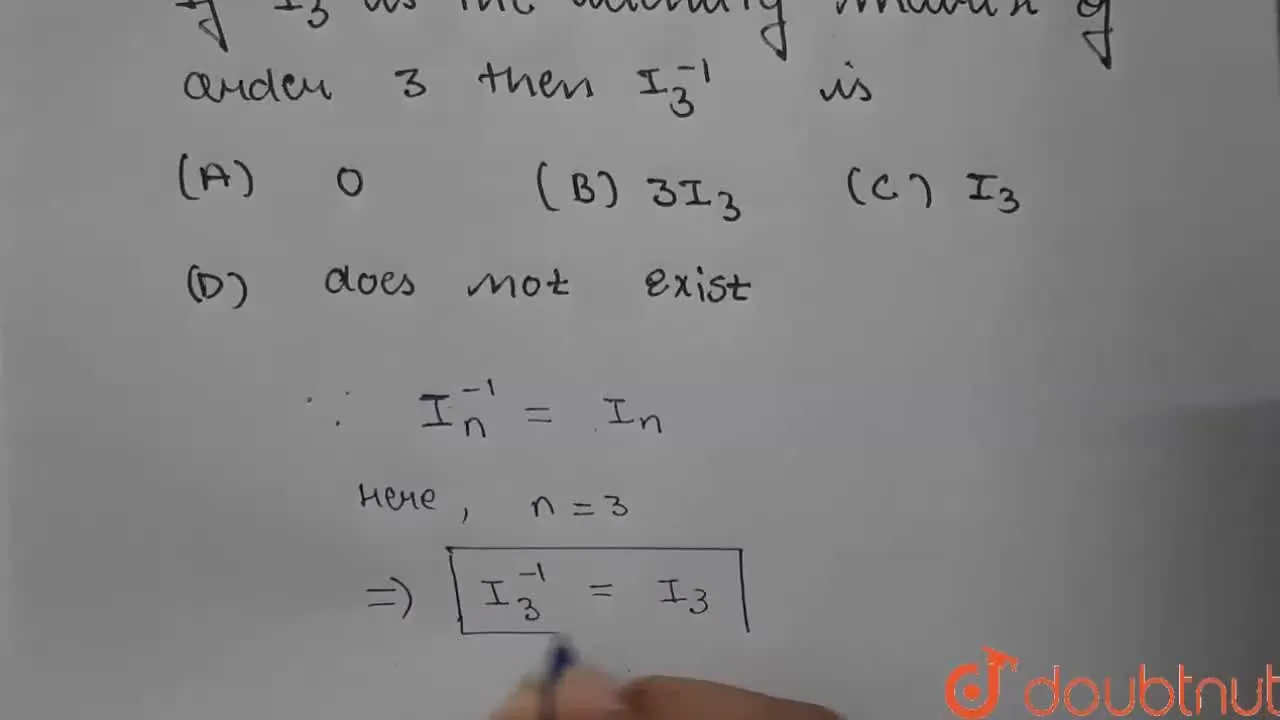 If I₃ is the identity matrix of
order 3 then I₃⁻¹ is
(A) 0 (B) 3I₃ (C) I₃
(D) does not exist
∵ Iₙ⁻¹ = Iₙ
Here, n = 3
⇒ I₃⁻¹ = I₃
doubtnut